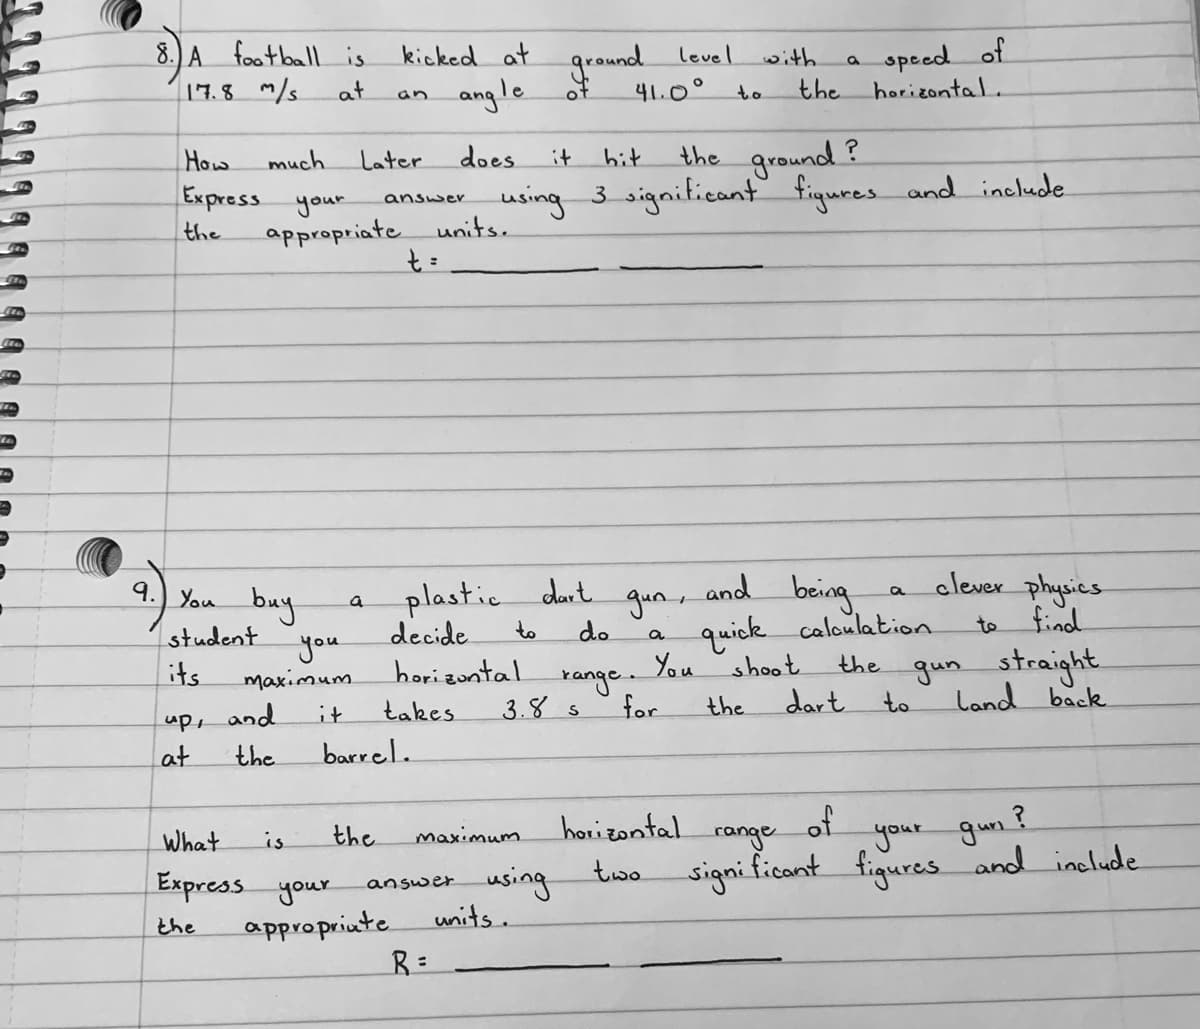 8.) A football is kicked at ground level with a speed of
17.8 m/s at an angle of 41.0° to the horizontal.
How much later does it hit the ground?
Express your answer using 3 significant figures and include
the appropriate units.
t = ______ ______
9.) You buy a plastic dart gun, and being a clever physics
student you decide to do a quick calculation to find
its maximum horizontal range. You shoot the gun straight
up, and it takes 3.8 s for the dart to land back
at the barrel.
What is the maximum horizontal range of your gun?
Express your answer using two significant figures and include
the appropriate units.
R = ______ ______